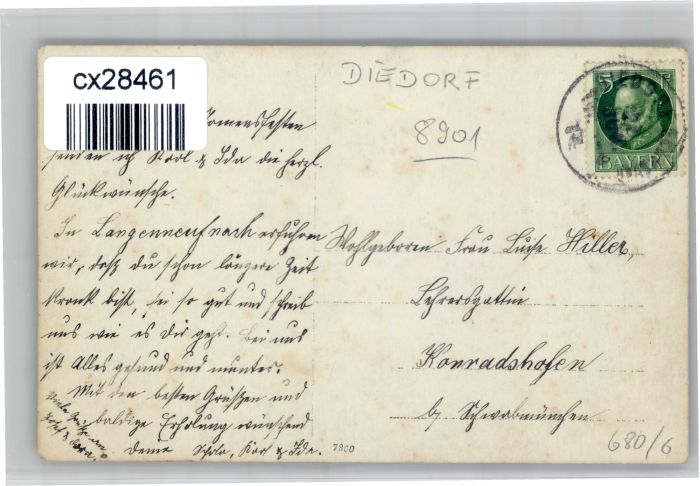 cx28461
DIEDORF
8901
5
BAYERN
Nomensfesten
senden ich Karl & Ida die herzl.
Glückwünsche.
In Langenneufnach erfuhren
wir, daß du schon längere Zeit
krank bist, sei so gut und schreib
uns wie es dir geht. Bei uns
ist Alles gesund und munter.
Mit den besten Grüßen und
baldige Erholung wünschend
Deine Karl & Ida.
Viele Grüße an
Wohlgeboren Frau Luise Hiller,
Lehrersgattin
Konradshofen
b/ Schwabmünchen
7300
680/6